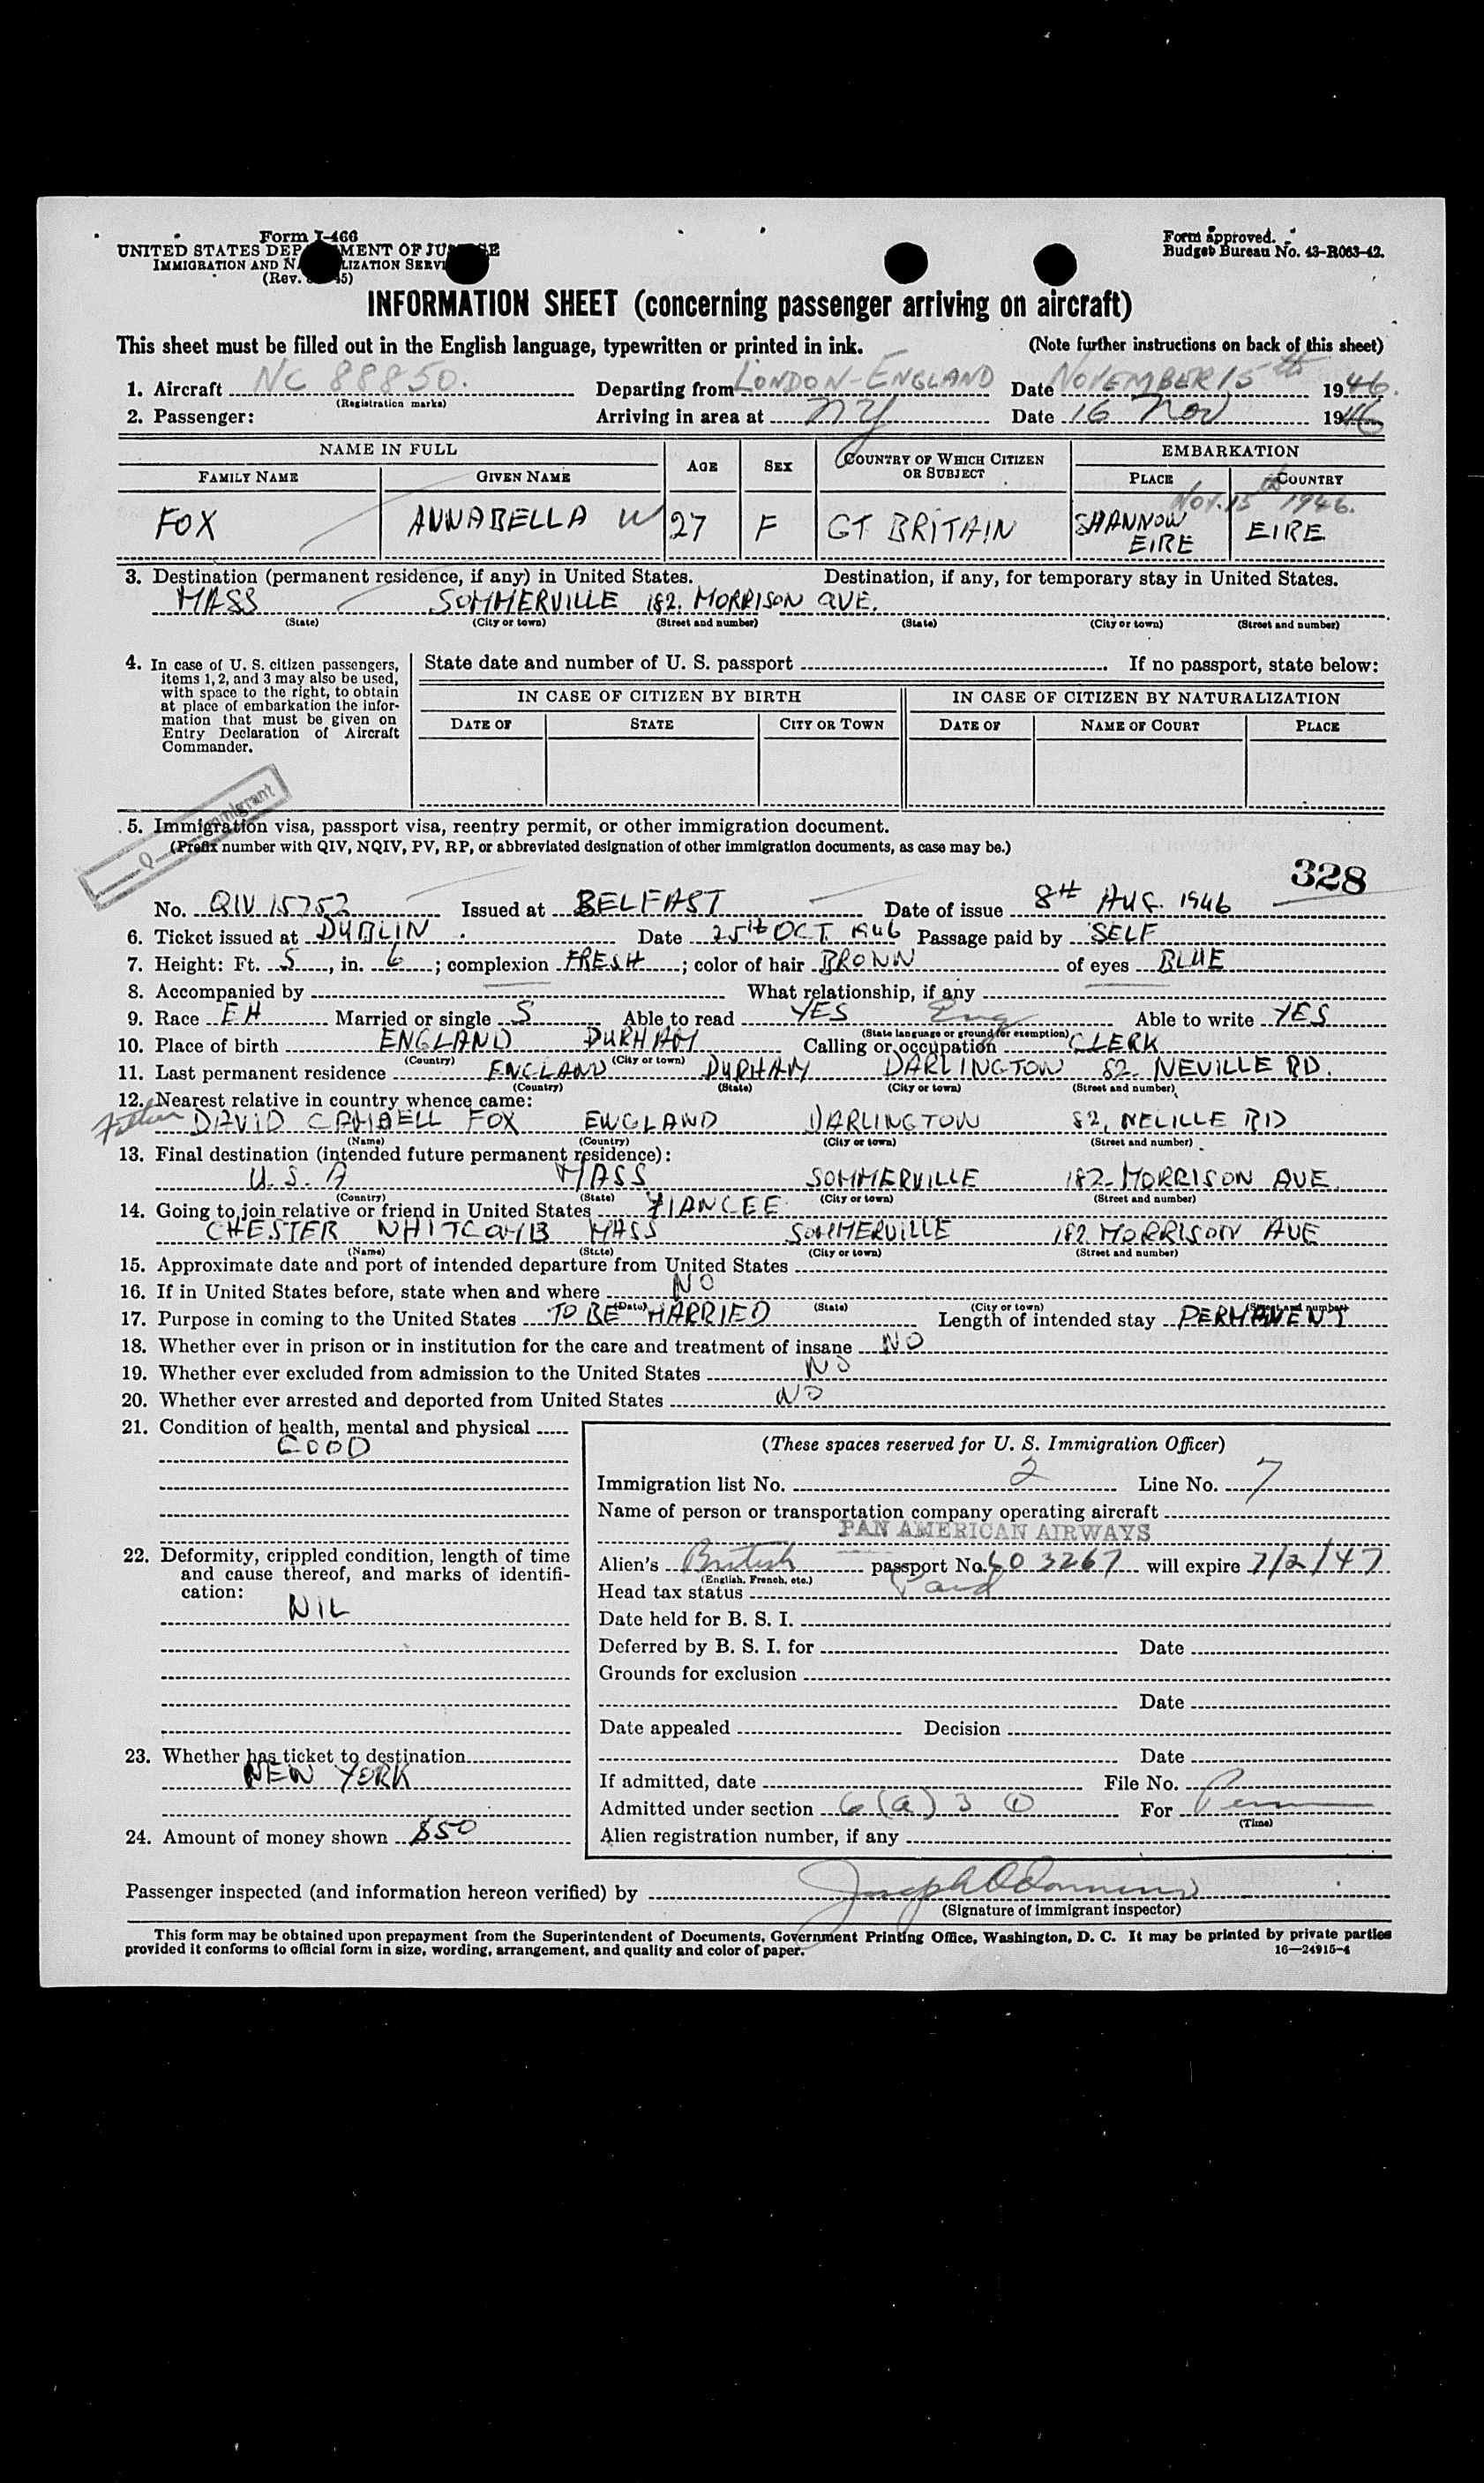 Form I-466
UNITED STATES DEP MENT OF JU E
IMMIGRATION AND NA LIZATION SERVI
(Rev. 45)
Form approved.
Budget Bureau No. 43-R063-42.
INFORMATION SHEET (concerning passenger arriving on aircraft)
This sheet must be filled out in the English language, typewritten or printed in ink. (Note further instructions on back of this sheet)
1. Aircraft NC 88850. Departing from LONDON-ENGLAND Date NOVEMBER 15th 1946.
(Registration marks)
2. Passenger: Arriving in area at NY Date 16 Nov 1946
NAME IN FULL AGE SEX COUNTRY OF WHICH CITIZEN OR SUBJECT EMBARKATION
FAMILY NAME GIVEN NAME PLACE COUNTRY
Nov. 15th 1946.
FOX ANNABELLA W 27 F GT BRITAIN SHANNON EIRE EIRE
3. Destination (permanent residence, if any) in United States. Destination, if any, for temporary stay in United States.
MASS SOMMERVILLE 182. MORRISON AVE.
(State) (City or town) (Street and number) (State) (City or town) (Street and number)
4. In case of U. S. citizen passengers, items 1, 2, and 3 may also be used, with space to the right, to obtain at place of embarkation the information that must be given on Entry Declaration of Aircraft Commander.
State date and number of U. S. passport If no passport, state below:
IN CASE OF CITIZEN BY BIRTH IN CASE OF CITIZEN BY NATURALIZATION
DATE OF STATE CITY OR TOWN DATE OF NAME OF COURT PLACE
Q Immigrant
5. Immigration visa, passport visa, reentry permit, or other immigration document.
(Prefix number with QIV, NQIV, PV, RP, or abbreviated designation of other immigration documents, as case may be.)
328
No. QIV 15753 Issued at BELFAST Date of issue 8th AUG. 1946
6. Ticket issued at DUBLIN. Date 25th OCT. 1946 Passage paid by SELF
7. Height: Ft. 5, in. 6; complexion FRESH; color of hair BROWN of eyes BLUE
8. Accompanied by What relationship, if any
9. Race EH Married or single S Able to read YES Eng Able to write YES
(State language or ground for exemption)
10. Place of birth ENGLAND DURHAM Calling or occupation CLERK
(Country) (City or town)
11. Last permanent residence ENGLAND DURHAM DARLINGTON 82. NEVILLE RD.
(Country) (State) (City or town) (Street and number)
12. Nearest relative in country whence came:
Father DAVID CAMBELL FOX ENGLAND DARLINGTON 82, NELILLE RD
(Name) (Country) (City or town) (Street and number)
13. Final destination (intended future permanent residence):
U. S. A MASS SOMMERVILLE 182. MORRISON AVE.
(Country) (State) (City or town) (Street and number)
14. Going to join relative or friend in United States FIANCEE
CHESTER WHITCOMB MASS SOMMERVILLE 182 MORRISON AVE
(Name) (State) (City or town) (Street and number)
15. Approximate date and port of intended departure from United States
16. If in United States before, state when and where NO
(Date) (State) (City or town) (Street and number)
17. Purpose in coming to the United States TO BE MARRIED Length of intended stay PERMANENT
18. Whether ever in prison or in institution for the care and treatment of insane NO
19. Whether ever excluded from admission to the United States NO
20. Whether ever arrested and deported from United States NO
21. Condition of health, mental and physical
GOOD
22. Deformity, crippled condition, length of time and cause thereof, and marks of identification:
NIL
23. Whether has ticket to destination
NEW YORK
24. Amount of money shown $50
(These spaces reserved for U. S. Immigration Officer)
Immigration list No. 2 Line No. 7
Name of person or transportation company operating aircraft
PAN AMERICAN AIRWAYS
Alien's British passport No. 603267 will expire 7/2/47
(English, French, etc.)
Head tax status Paid
Date held for B. S. I.
Deferred by B. S. I. for Date
Grounds for exclusion
Date
Date appealed Decision
Date
If admitted, date File No.
Admitted under section 6(a) 3 (1) For Perm
(Time)
Alien registration number, if any
Passenger inspected (and information hereon verified) by Joseph
(Signature of immigrant inspector)
This form may be obtained upon prepayment from the Superintendent of Documents, Government Printing Office, Washington, D. C. It may be printed by private parties
provided it conforms to official form in size, wording, arrangement, and quality and color of paper. 16—24915-4